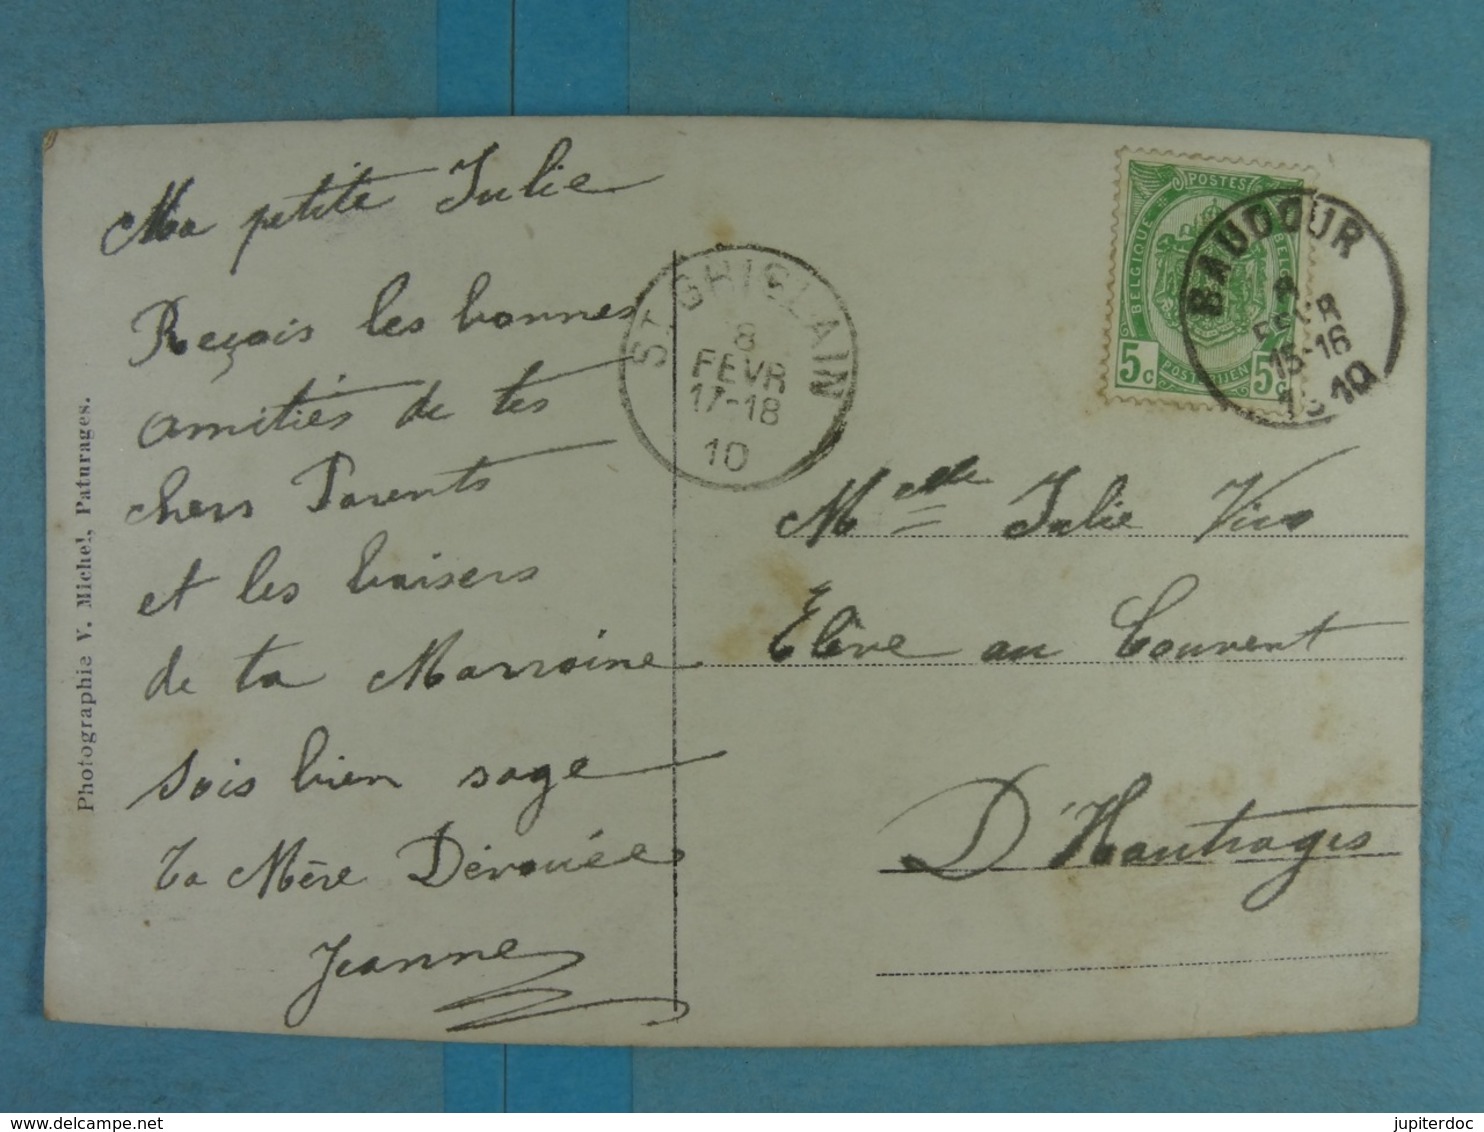 Ma petite Julie
Reçois les bonnes
amitiés de tes
chers Parents
et les baisers
de ta Marraine
sois bien sage
ta Mère Dévouée
Jeanne
Photographie V. Michel, Paturages.
ST GHISLAIN
8
FEVR
17-18
10
POSTES
BELGIQUE
BELG
5c
POSTERIJEN
5c
BAUDOUR
FEVR
15-16
10
Melle Julie
Elève au Couvent
D'Hautrages
www.delcampe.net
jupiterdoc